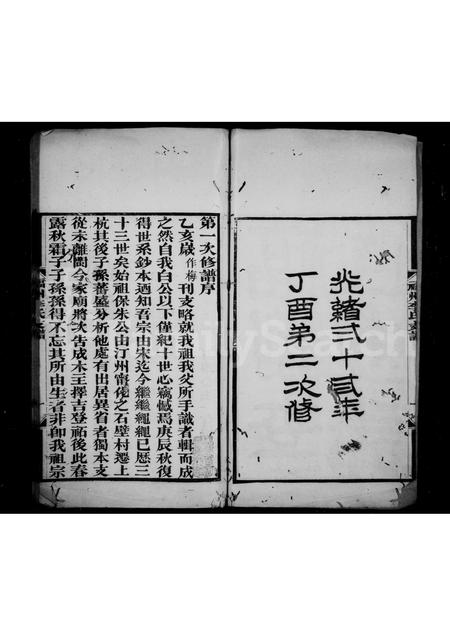 光緒弍十弍年
丁酉第二次修
第一次修譜序
乙亥歲作梅刊支略就我祖我父所手識者輯而成
之然自我白公以下僅紀十世心竊憾焉庚辰秋復
得世系鈔本迺知吾宗由宋迄今繼繼繩繩已歷三
十三世矣始祖保朱公由汀州甯化之石壁村遷上
杭其後子孫蕃盛分析他處有出居異省者獨本支
從未離閩今家廟將次告成木主擇吉登祏後此春
露秋霜子子孫孫得不忘其所由生者非卽我祖宗